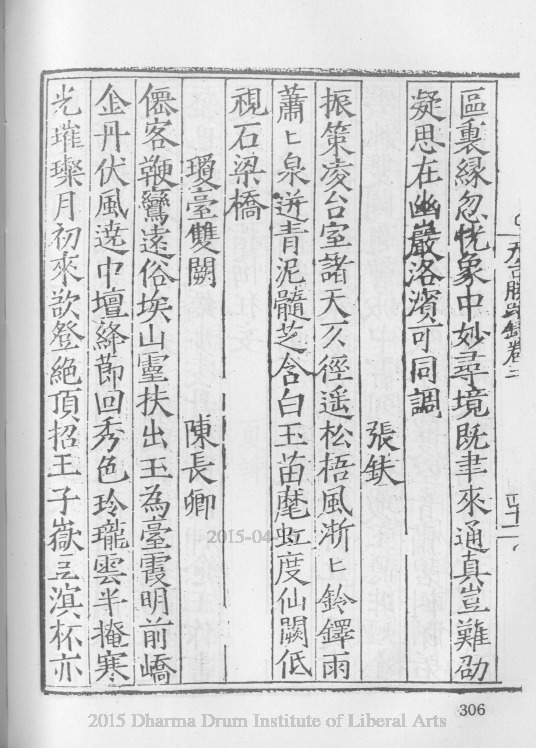 區裏緣忽恍象中妙尋境既聿來通真豈難劭
凝思在幽巖洛濱可同調
張鈇
振策凌台室諸天一徑遥松梧風淅匕鈴鐸雨
蕭匕泉迸青泥髓芝含白玉苗麾虹度仙闕低
視石梁橋
瓊臺雙闕
陳長卿
僊客鞭鸞遠俗埃山靈扶出玉為臺霞明前嶠
金丹伏風遶中壇絳節回秀色玲瓏雲半掩寒
光璀璨月初來欲登絕頂招王子嶽豆滇杯亦
天台勝蹟錄卷二
2015-04-
306
2015 Dharma Drum Institute of Liberal Arts